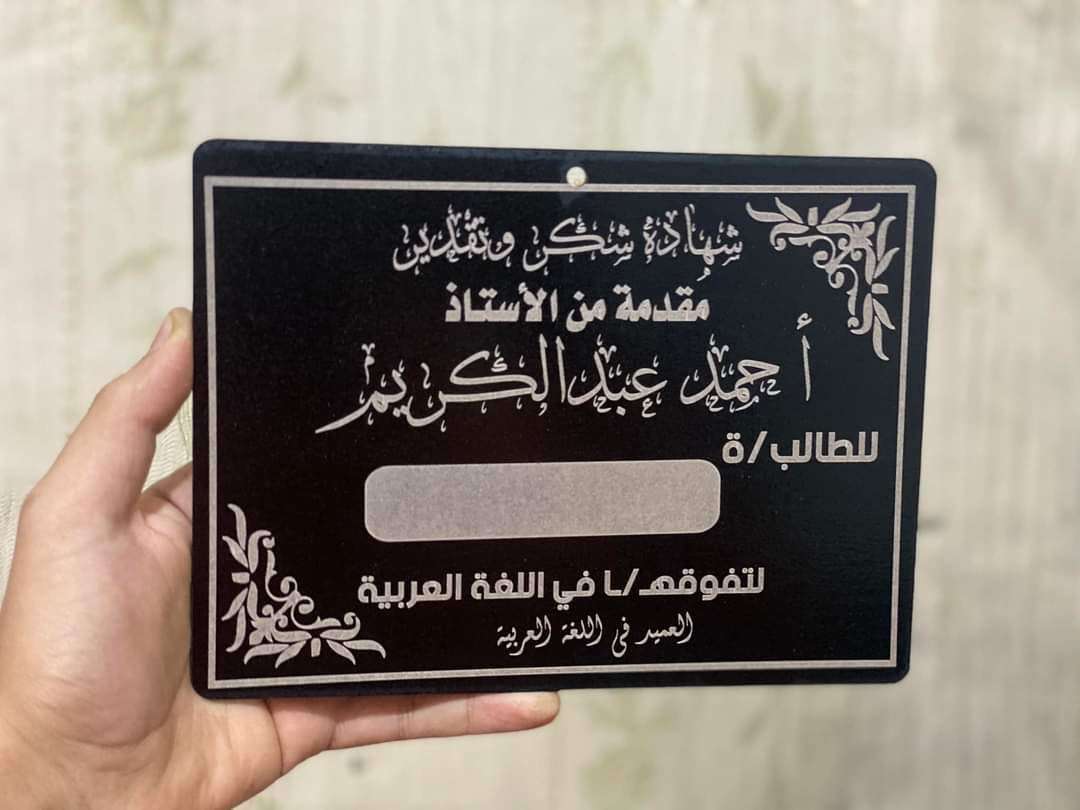 شهادة شكر وتقدير
مُقدمة من الأستاذ
أحمد عبدالكريم
للطالب/ة
لتفوقهـ/ـا في اللغة العربية
العميد في اللغة العربية